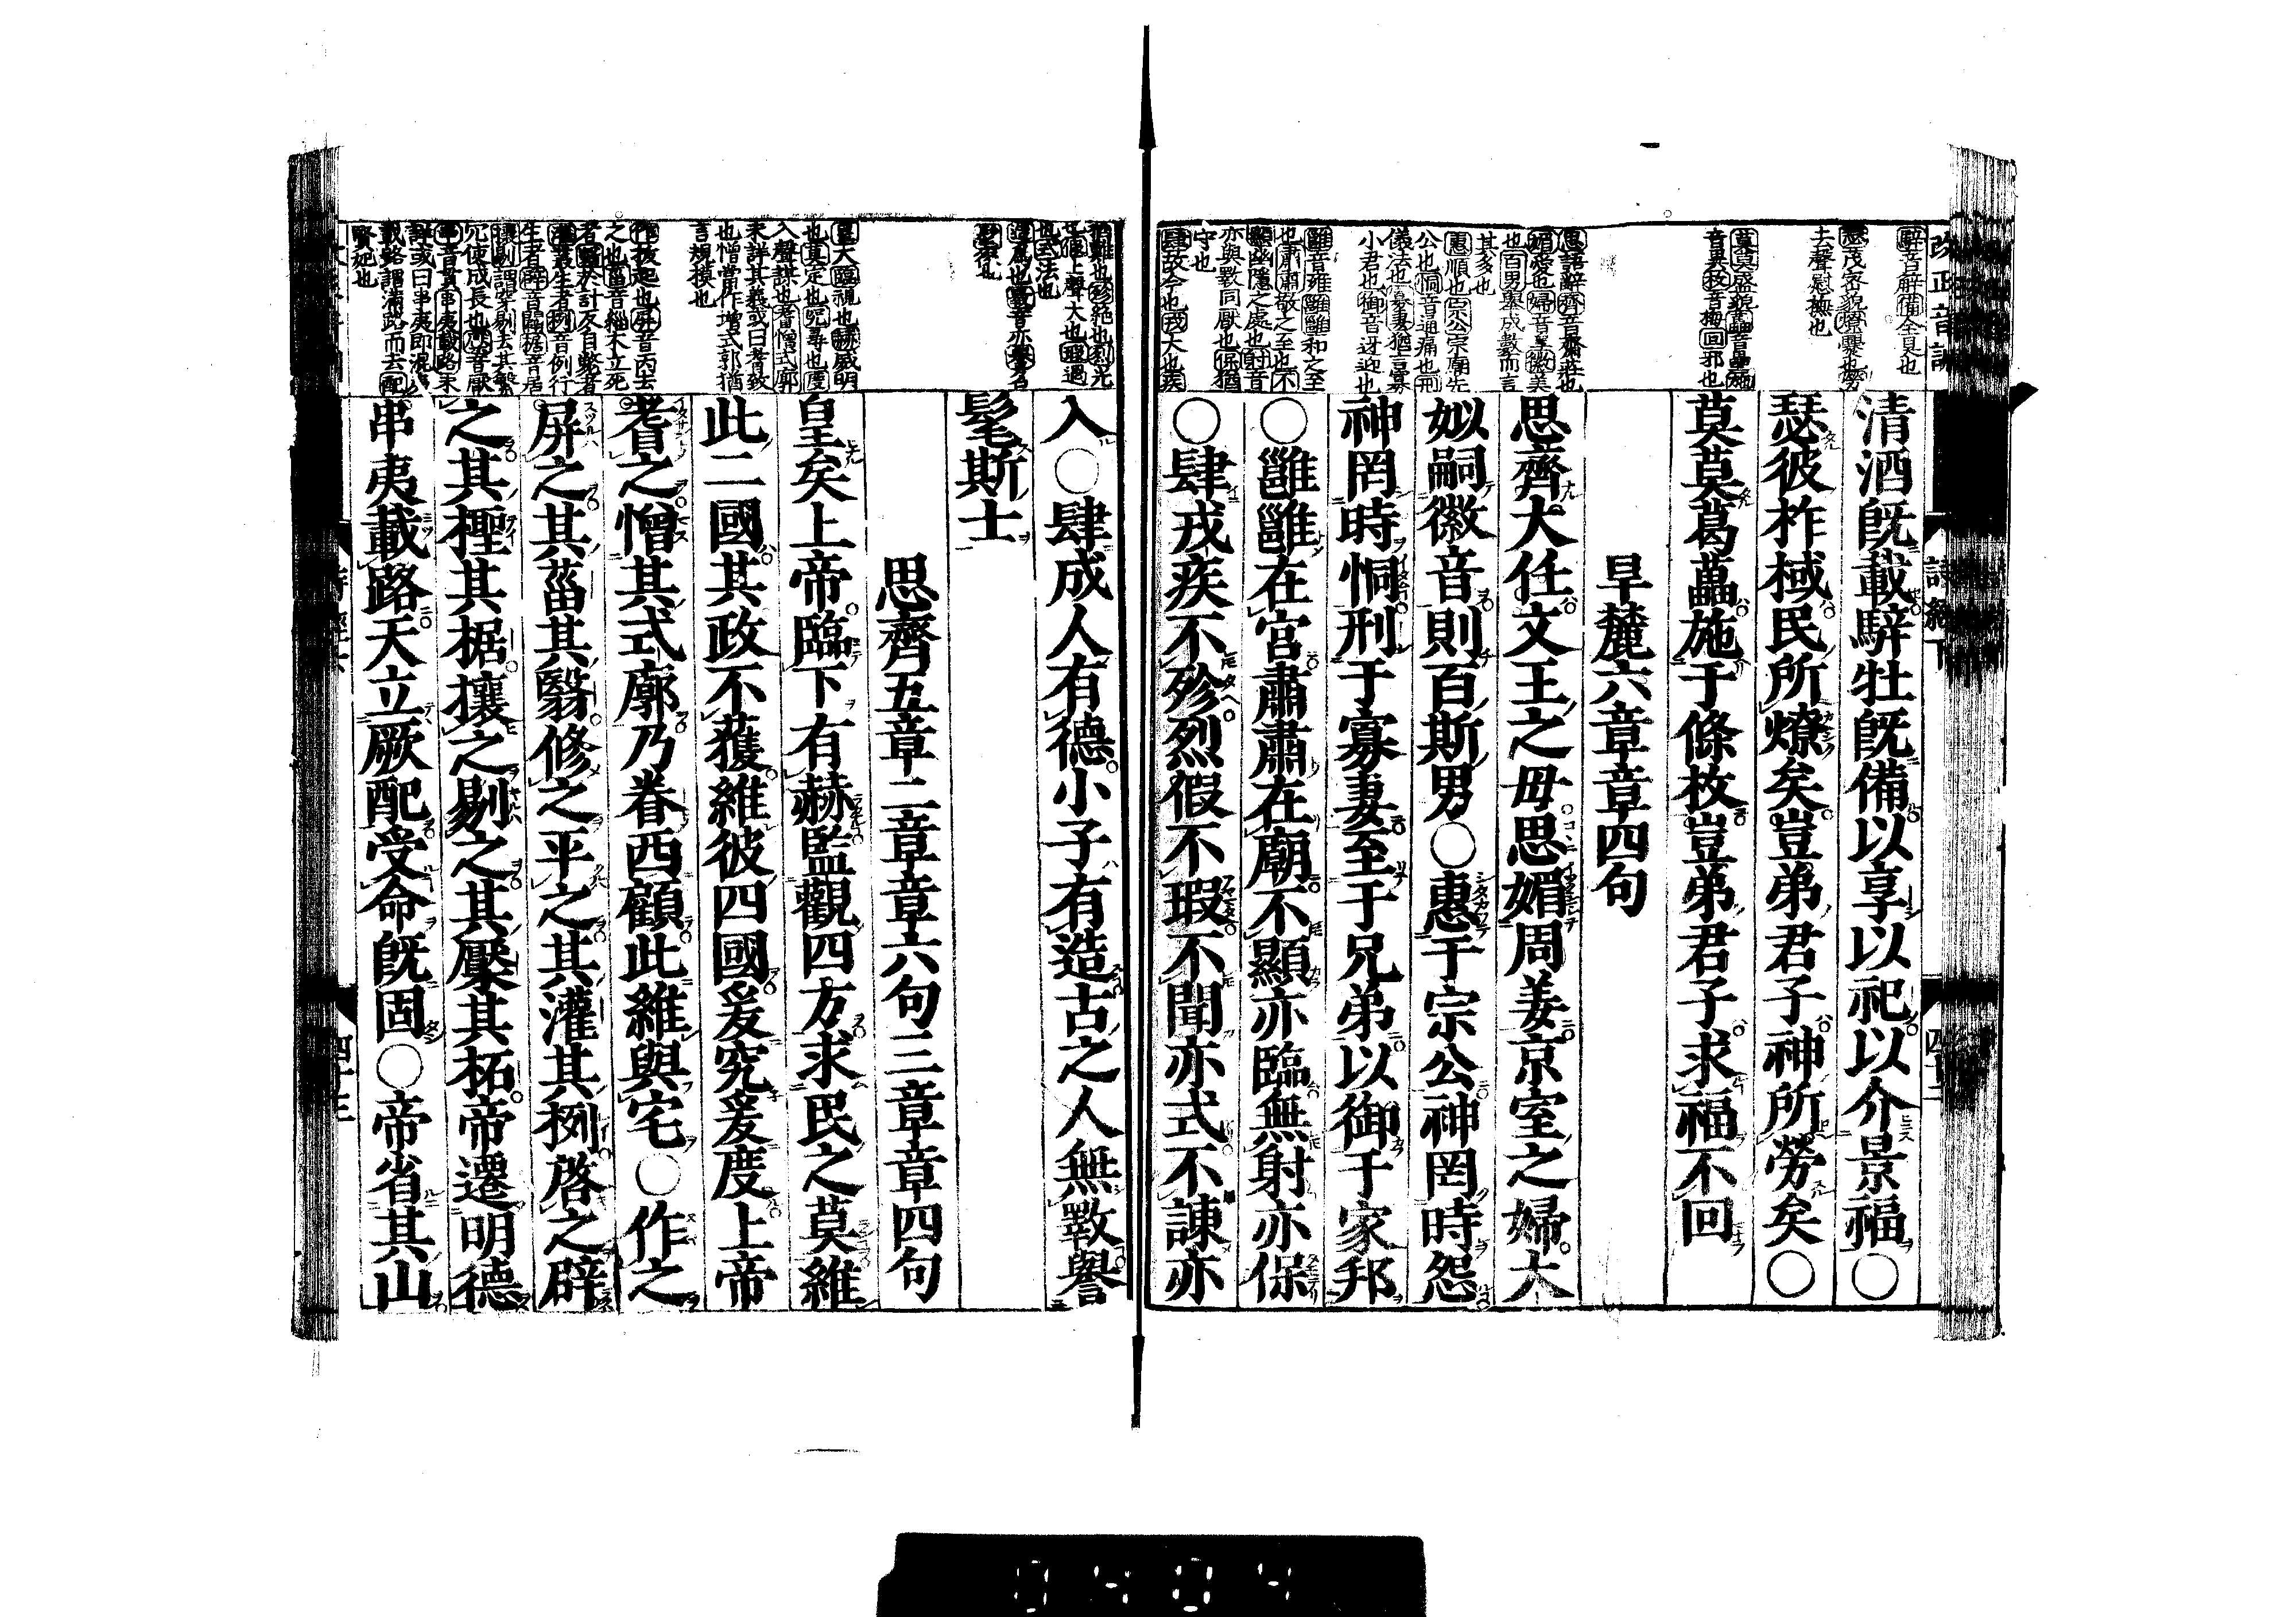 清酒既載騂牡既備以享以祀以介景福〇
瑟彼柞棫民所燎矣豈弟君子神所勞矣〇
莫莫葛藟施于條枚豈弟君子求福不回
早麓六章章四句
思齊大任文王之母思媚周姜京室之婦大
姒嗣徽音則百斯男〇惠于宗公神罔時怨
神罔時恫刑于寡妻至于兄弟以御于家邦
〇雝雝在宮肅肅在廟不顯亦臨無射亦保
〇肆戎疾不殄烈假不瑕不聞亦式不諫亦
入〇肆成人有德小子有造古之人無斁譽
髦斯士
思齊五章二章章六句三章章四句
皇矣上帝臨下有赫監觀四方求民之莫維
此二國其政不獲維彼四國爰究爰度上帝
耆之憎其式廓乃眷西顧此維與宅〇作之
屏之其菑其翳修之平之其灌其栵啓之辟
之其檉其椐攘之剔之其檿其柘帝遷明德
串夷載路天立厥配受命既固〇帝省其山
騂音觧備全具也
瑟茂密貌燎爨也勞
去聲慰撫也
思語辭齊音齋莊也
媚愛也婦音阜徽美
也百男舉成數而言
其多也
惠順也宗公宗廟先
公也恫音通痛也刑
儀法也寡妻猶言寡
小君也御音迓迎也
雝音雍雝雝和之至
也肅肅敬之至也不
顯幽隱之處也射音
亦與斁同厭也保猶
守也
肆故今也戎大也疾
猶難也殄絶也烈光
也假上聲大也瑕過
也式法也
皇大臨視也赫威明
也莫定也究尋也度
入聲謀也耆憎式廓
未詳其義或曰耆致
也憎當作增式郭猶
言規模也
作拔起也屏音丙去
之也菑音緇木立死
載路謂滿路而去配
賢妃也
0404